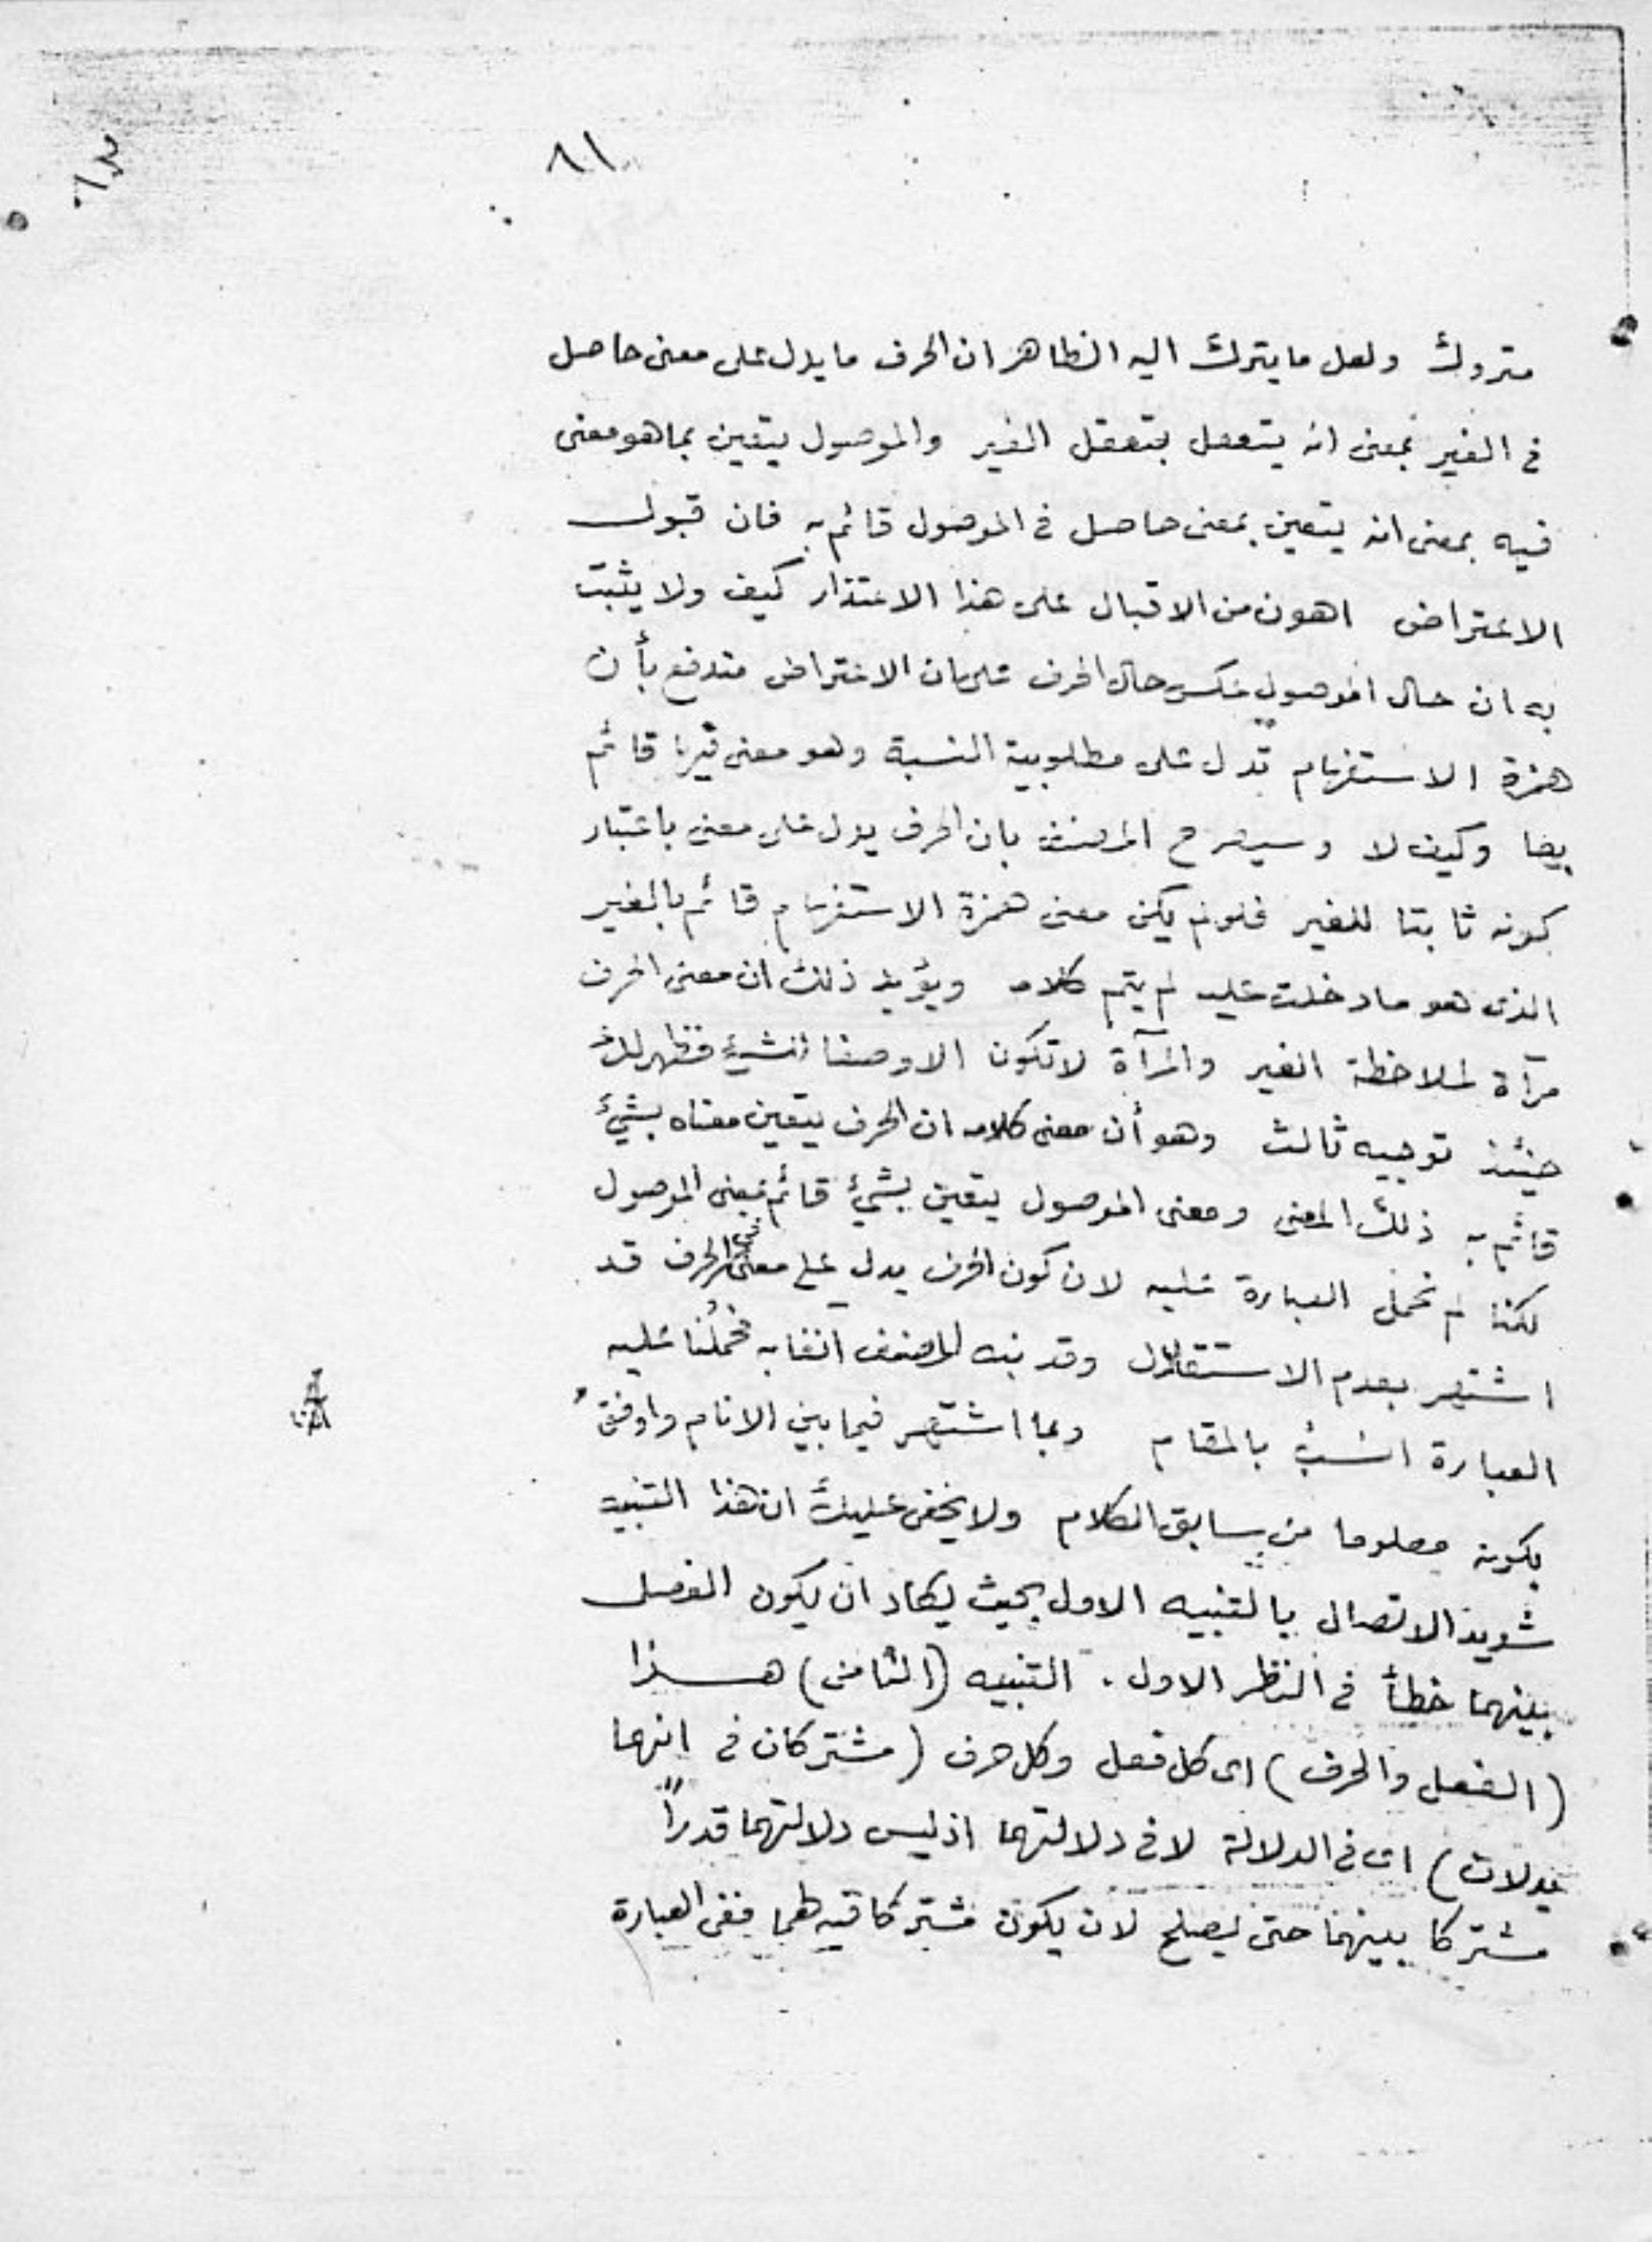 ٨١
متروك ولعل ما يترك اليه الظاهر ان الحرف ما يدل على معنى حاصل
في الغير بمعنى انه يتعقل بتعقل الغير والموصول يتعين بما هو معنى
فيه بمعنى انه يتعين بمعنى حاصل في الموصول قائم به فان قبول
الاعتراض اهون من الاقبال على هذا الاعتذار كيف ولا يثبت
به ان حال الموصول عكس حال الحرف على ان الاعتراض مندفع بأن
همزة الاستفهام تدل على مطلوبية النسبة وهو معنى فيها قائم
بها وكيف لا وسيصرح المصنف بان الحرف يدل على معنى باعتبار
كونه ثابتا للغير فلو لم يكن معنى همزة الاستفهام قائم بالغير
الذى هو ما دخلت عليه لم يتم كلامه ويؤيد ذلك ان معنى الحرف
مرآة لملاحظة الغير والمرآة لا تكون الا وصفا لشيء فظهر لك
حينئذ توجيه ثالث وهو أن معنى كلامه ان الحرف يتعين معناه بشيء
قائم به ذلك المعنى ومعنى الموصول يتعين بشيء قائم بمعنى الموصول
لكنا لم نحمل العبارة عليه لان كون الحرف يدل على معنى الحرف قد
اشتهر بعدم الاستقلال وقد نبه المصنف آنفا به فحملنا عليه
العبارة انسب بالمقام وبما اشتهر فيما بين الانام واوفق
بكونه معلوما من سابق الكلام ولا يخفى عليك ان هذا التنبيه
شديد الاتصال بالتنبيه الاول بحيث يكاد ان يكون الفصل
بينهما خطأ في النظر الاول . التنبيه (الثامن) هذا
(الفعل والحرف) اى كل فعل وكل حرف (مشتركان في انهما
يدلان) اى في الدلالة لا في دلالتهما اذ ليس دلالتهما قدراً
مشتركا بينهما حتى يصلح لان يكون مشتركا فيه لهما ففى العبارة